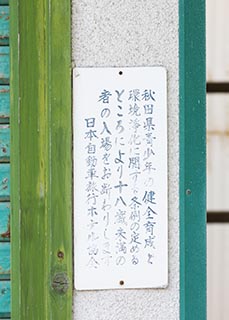 秋田県青少年の健全育成と
環境浄化に関する条例の定める
ところにより十八歳未満の
者の入場をお断わりします
日本自動車旅行ホテル協会